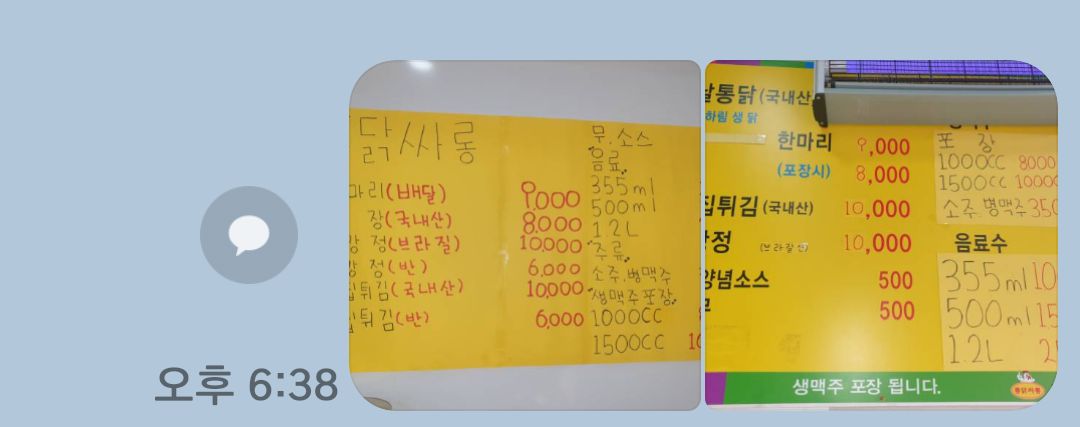 오후 6:38
닭싸롱
마리(배달) 9,000
장(국내산) 8,000
강 정(브라질) 10,000
강 정(반) 6,000
튀김(국내산) 10,000
튀김(반) 6,000
무.소스
음료
355ml
500ml
1.2L
주류
소주.병맥주
생맥주포장
1000CC
1500CC
통닭(국내산
하림 생 닭
한마리 9,000
(포장시) 8,000
튀김(국내산) 10,000
정 (브라질산) 10,000
양념소스 500
500
포 장
1000CC 8000
1500CC 10000
소주.병맥주 350
음료수
355ml 10
500ml 1.5
1.2L 2
생맥주 포장 됩니다.